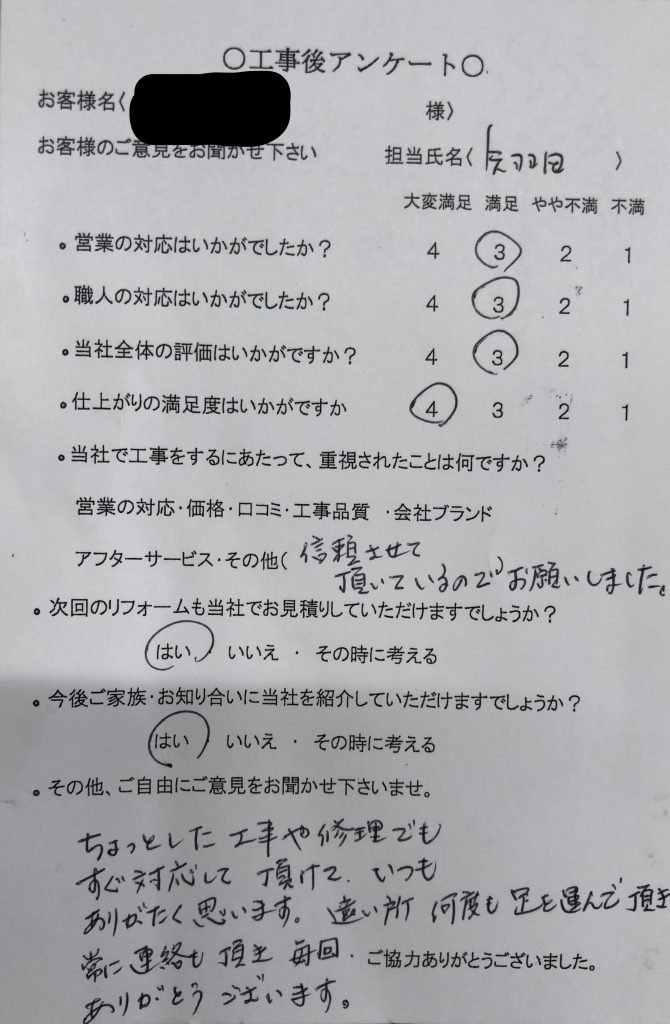 〇工事後アンケート〇
お客様名〈 様〉
お客様のご意見をお聞かせ下さい 担当氏名〈 矢羽田 〉
大変満足 満足 やや不満 不満
。営業の対応はいかがでしたか？ 4 3 2 1
。職人の対応はいかがでしたか？ 4 3 2 1
。当社全体の評価はいかがですか？ 4 3 2 1
。仕上がりの満足度はいかがですか 4 3 2 1
。当社で工事をするにあたって、重視されたことは何ですか？
営業の対応・価格・口コミ・工事品質 ・会社ブランド
アフターサービス・その他( 信頼させて
頂いているので お願いしました。
。次回のリフォームも当社でお見積りしていただけますでしょうか？
はい ・ いいえ ・ その時に考える
。今後ご家族・お知り合いに当社を紹介していただけますでしょうか？
はい ・ いいえ ・ その時に考える
。その他、ご自由にご意見をお聞かせ下さいませ。
ちょっとした 工事や修理でも
すぐ対応して 頂けて、いつも
ありがたく思います。 遠い所 何度も 足を運んで 頂き
常に連絡も 頂き 毎回・ ご協力ありがとうございました。
ありがとう ございます。